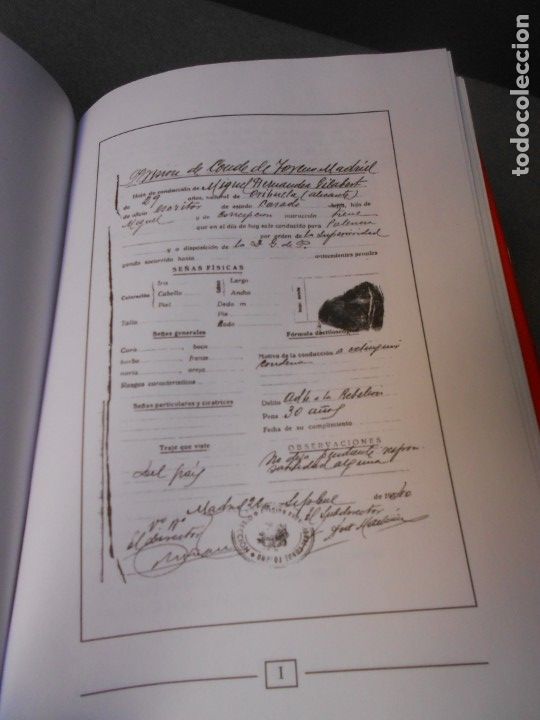 Prision de Conde de Toreno Madrid
Hoja de conducción de Miguel Hernandez Gilabert
de 29 años, natural de Orihuela (alicante)
de oficio escritor de estado Casado hijo de
Miguel y de Concepcion instrucción tiene
que en el día de hoy sale conducido para Palencia
por orden de la Superioridad
y a disposición de la D. G. de P.
yendo socorrido hasta antecedentes penales
SEÑAS FÍSICAS
Coloración Iris Cabello Piel
Largo
Ancho
Dedo m
Pie
Codo
Talla
Señas generales
Fórmula
Cara boca
barba frente
nariz oreja
Rasgos característicos
Motivo de la conducción a extinguir
condena
Señas particulares y cicatrices
Delito Adh. a la Rebelion
Pena 30 años
Fecha de su cumplimiento
Traje que viste
OBSERVACIONES
del país
No deja pendiente respon
sabilidad alguna
Madrid 22 de Sepbre de
Vº Bº
El director
El Subdirector
I
todocoleccion